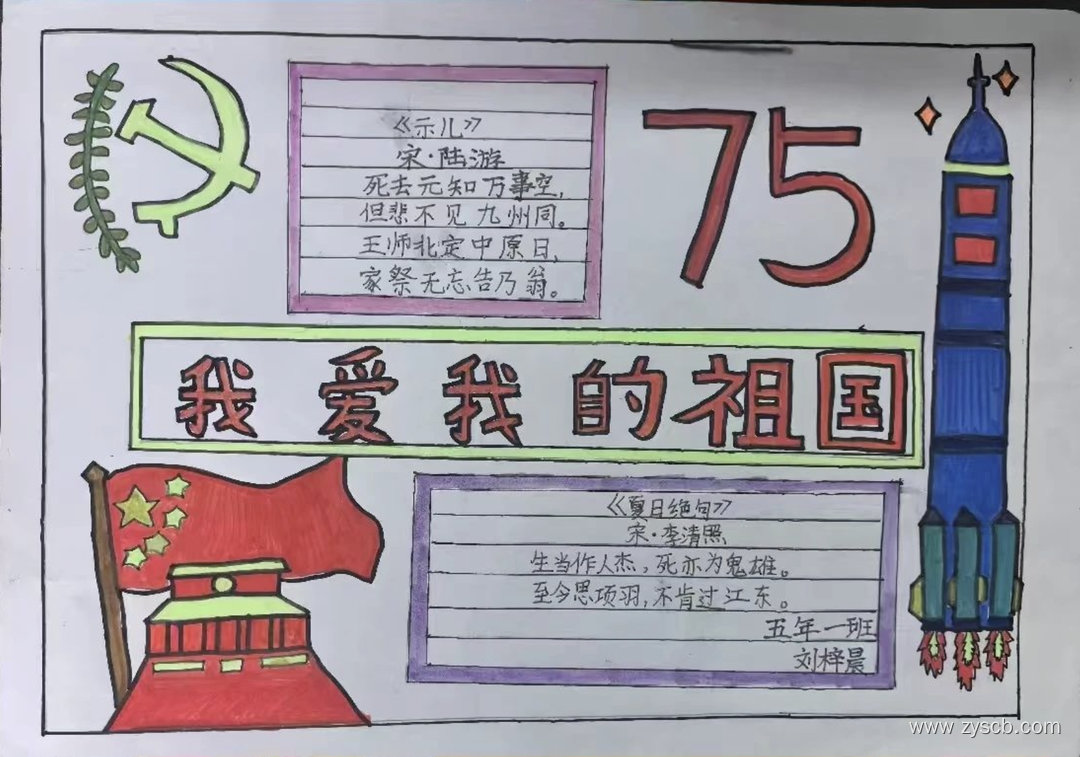 《示儿》
宋·陆游
死去元知万事空,
但悲不见九州同。
王师北定中原日,
家祭无忘告乃翁。
75
我爱我的祖国
《夏日绝句》
宋·李清照
生当作人杰,死亦为鬼雄。
至今思项羽,不肯过江东。
五年一班
刘梓晨
www.zyscb.com